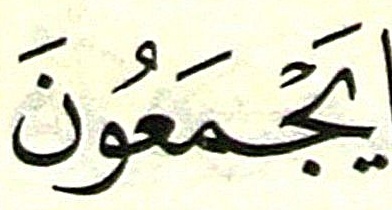 يَجْمَعُونَ